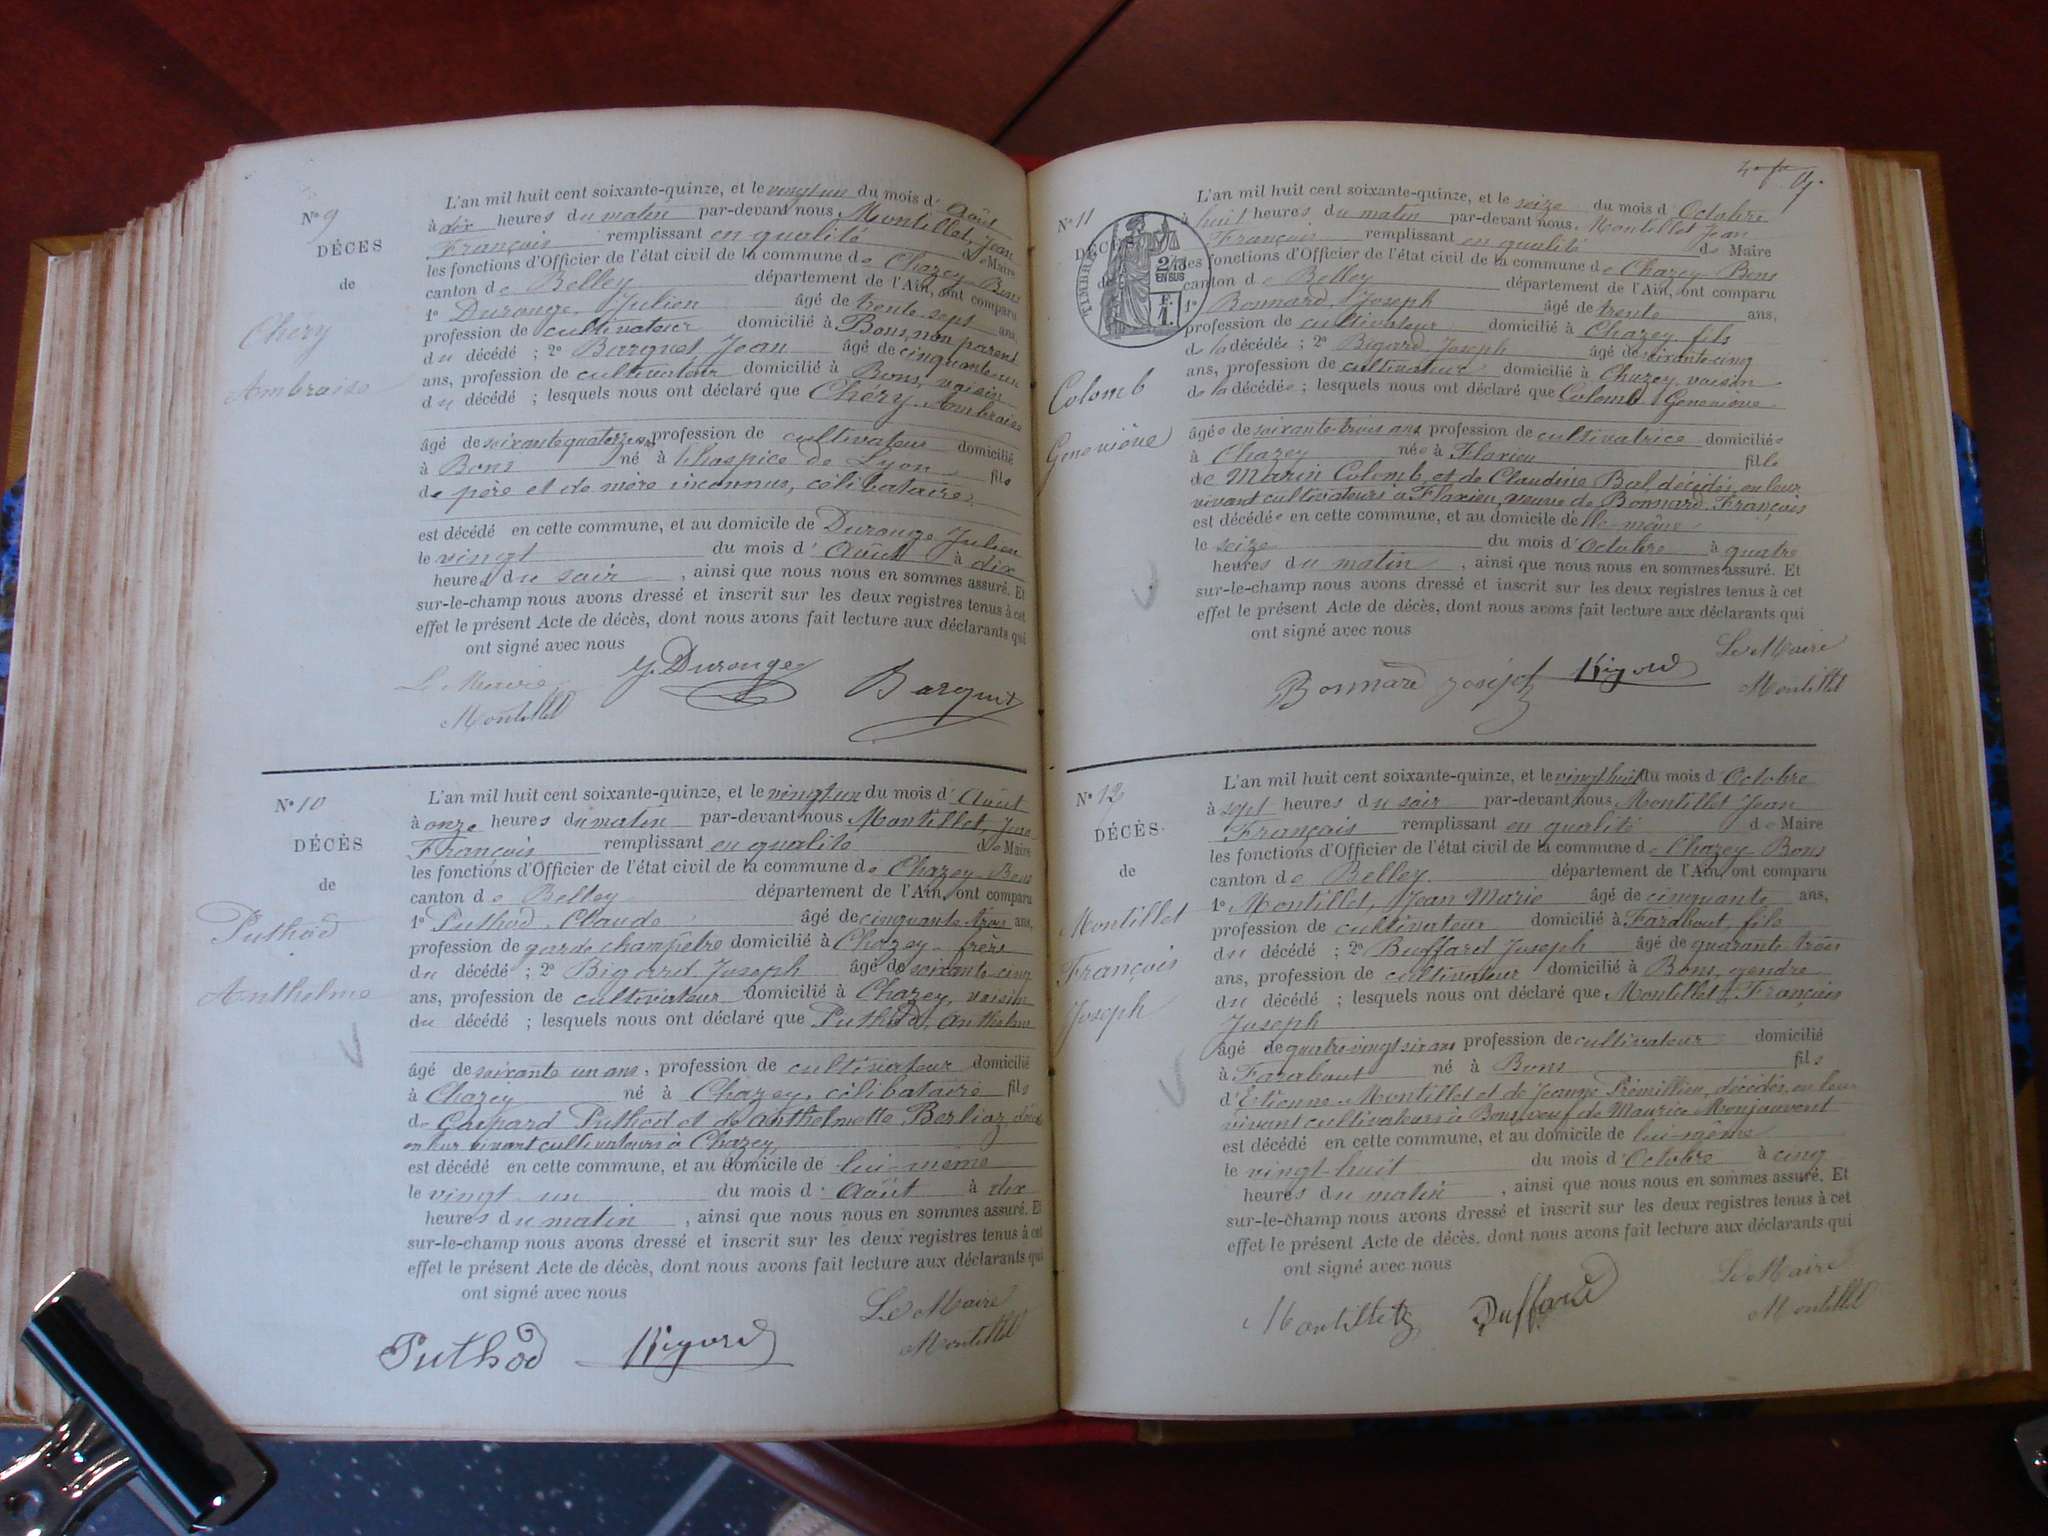 N° 9
DÉCÈS
de
Chéry
Ambroise
L'an mil huit cent soixante-quinze, et le vingt un du mois d'Août
à dix heures du matin par-devant nous Montillet, Jean
François remplissant en qualité de Maire
les fonctions d'Officier de l'état civil de la commune de Chazey-Bons
canton de Belley département de l'Ain, ont comparu
1° Durouge, Julien âgé de trente sept ans,
profession de cultivateur domicilié à Bons, non parent
du décédé ; 2° Barquet Jean âgé de cinquante un
ans, profession de cultivateur domicilié à Bons, voisin
du décédé ; lesquels nous ont déclaré que Chéry Ambroise
âgé de soixante quatorze ans profession de cultivateur domicilié
à Bons né à l'hospice de Lyon fils
de père et de mère inconnus, célibataire,
est décédé en cette commune, et au domicile de Durouge Julien
le vingt du mois d'Août à dix
heures du soir, ainsi que nous nous en sommes assuré. Et
sur-le-champ nous avons dressé et inscrit sur les deux registres tenus à cet
effet le présent Acte de décès, dont nous avons fait lecture aux déclarants qui
ont signé avec nous
Le Maire
Montillet
J. Durouge
Barquet
N° 10
DÉCÈS
de
Puthod
Anthelme
L'an mil huit cent soixante-quinze, et le vingt un du mois d'Août
à onze heures du matin par-devant nous Montillet, Jean
François remplissant en qualité de Maire
les fonctions d'Officier de l'état civil de la commune de Chazey-Bons
canton de Belley département de l'Ain, ont comparu
1° Puthod, Claude âgé de cinquante trois ans,
profession de garde champêtre domicilié à Chazey frère
du décédé ; 2° Bigard Joseph âgé de soixante cinq
ans, profession de cultivateur domicilié à Chazey, voisin
du décédé ; lesquels nous ont déclaré que Puthod, Anthelme
âgé de soixante un ans, profession de cultivateur domicilié
à Chazey né à Chazey, célibataire fils
de Gaspard Puthod et de Anthelmette Berlioz
en leur vivant cultivateurs à Chazey,
est décédé en cette commune, et au domicile de lui-même
le vingt un du mois d'Août à dix
heures du matin, ainsi que nous nous en sommes assuré. Et
sur-le-champ nous avons dressé et inscrit sur les deux registres tenus à cet
effet le présent Acte de décès, dont nous avons fait lecture aux déclarants qui
ont signé avec nous
Le Maire
Montillet
Puthod
Bigard
N° 11
DÉCÈS
de
TIMBRE
2/10
EN SUS
F.
1.
Colomb
Geneviève
L'an mil huit cent soixante-quinze, et le seize du mois d'Octobre
à huit heures du matin par-devant nous, Montillet Jean
François remplissant en qualité de Maire
les fonctions d'Officier de l'état civil de la commune de Chazey-Bons
canton de Belley département de l'Ain, ont comparu
1° Bonnard, Joseph âgé de trente ans,
profession de cultivateur domicilié à Chazey, fils
de la décédée ; 2° Bigard Joseph âgé de soixante-cinq
ans, profession de cultivateur domicilié à Chazey, voisin
de la décédée ; lesquels nous ont déclaré que Colomb Geneviève
âgée de soixante-trois ans profession de cultivatrice domiciliée
à Chazey née à Flaxieu fille
de Marin Colomb, et de Claudine Bal, décédés, en leur
vivant cultivateurs à Flaxieu, veuve de Bonnard, François
est décédée en cette commune, et au domicile d'elle-même
le seize du mois d'Octobre à quatre
heures du matin, ainsi que nous nous en sommes assuré. Et
sur-le-champ nous avons dressé et inscrit sur les deux registres tenus à cet
effet le présent Acte de décès, dont nous avons fait lecture aux déclarants qui
ont signé avec nous
Le Maire
Montillet
Bonnard Joseph
Bigard
N° 12
DÉCÈS
de
Montillet
François
Joseph
L'an mil huit cent soixante-quinze, et le vingt huit du mois d'Octobre
à sept heures du soir par-devant nous Montillet Jean
François remplissant en qualité de Maire
les fonctions d'Officier de l'état civil de la commune de Chazey-Bons
canton de Belley département de l'Ain, ont comparu
1° Montillet, Jean Marie âgé de cinquante ans,
profession de cultivateur domicilié à Farabout, fils
du décédé ; 2° Buffard Joseph âgé de quarante trois
ans, profession de cultivateur domicilié à Bons, gendre
du décédé ; lesquels nous ont déclaré que Montillet François
Joseph
âgé de quatre-vingt six ans profession de cultivateur domicilié
à Farabout né à Bons fils
d'Etienne Montillet et de Jeanne Prémillieu, décédés, en leur
vivant cultivateurs à Bons, veuf de Maurice Monjauvent
est décédé en cette commune, et au domicile de lui-même
le vingt-huit du mois d'Octobre à cinq
heures du matin, ainsi que nous nous en sommes assuré. Et
sur-le-champ nous avons dressé et inscrit sur les deux registres tenus à cet
effet le présent Acte de décès, dont nous avons fait lecture aux déclarants qui
ont signé avec nous
Le Maire
Montillet
Montillet
Buffard